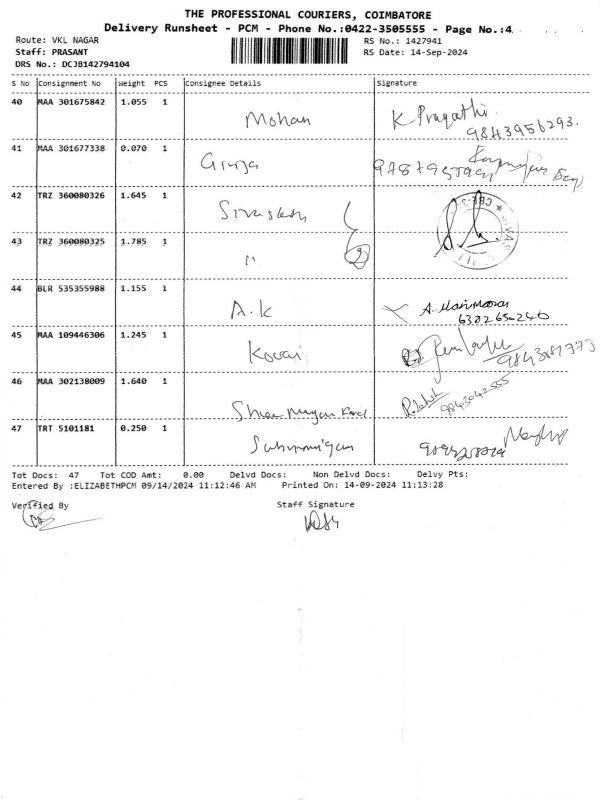 THE PROFESSIONAL COURIERS, COIMBATORE
Delivery Runsheet - PCM - Phone No.:0422-3505555 - Page No.:4
Route: VKL NAGAR
RS No.: 1427941
Staff: PRASANT
RS Date: 14-Sep-2024
DRS No.: DCJB142794104
S No Consignment No Weight PCS Consignee Details Signature
40 MAA 301675842 1.055 1 Mohan K Pragathi
9843956293.
41 MAA 301677338 0.070 1 Girija
42 TRZ 360080326 1.645 1
43 TRZ 360080325 1.785 1 "
2
44 BLR 535355988 1.155 1 A.K
6382656240
45 MAA 109446306 1.245 1 Kovai
46 MAA 302138009 1.640 1
9843042555
47 TRT 5101181 0.250 1
Tot Docs: 47 Tot COD Amt: 0.00 Delvd Docs: Non Delvd Docs: Delvy Pts:
Entered By :ELIZABETHPCM 09/14/2024 11:12:46 AM Printed On: 14-09-2024 11:13:28
Verified By Staff Signature